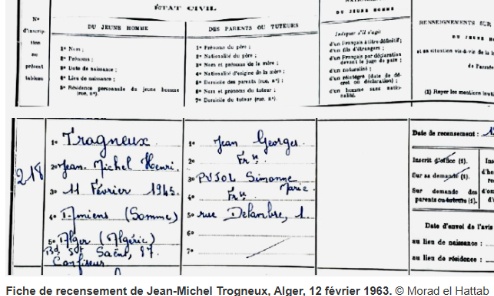 ÉTAT CIVIL
N°
d'inscrip
tion
au
présent
tableau
DU JEUNE HOMME
DES PARENTS OU TUTEURS
NATIONALITÉ
DU JEUNE HOMME
RENSEIGNEMENTS SUR
1° Nom ;
2° Prénoms ;
3° Date de naissance ;
4° Lieu de naissance ;
5° Résidence personnelle du jeune homme
(rue, n°)
1° Prénoms du père ;
2° Nationalité du père ;
3° Nom et prénoms de la mère ;
4° Nationalité d'origine de la mère ;
5° Domicile des parents (rue, n°) ;
6° Nom et prénoms du tuteur ;
7° Domicile du tuteur (rue, n°)
Indiquer s'il s'agit
d'un Français à titre définitif ;
d'un fils d'étrangers ;
d'un Français par déclaration
devant le juge de paix ;
d'un naturalisé ;
(1) Rayer les mentions
218
1° Trogneux
2° Jean Michel Henri
3° 11 Février 1945
4° Amiens (Somme)
5° Alger (Algérie)
1° Jean Georges
2° Fr
3° PUJOL Simonne
Marie
4° Fr
5° rue Delambre, 1.
6°
7°
Date de recensement :
Inscrit d'office (1)
Sur sa demande (1)
Sur demande des
parents ou tuteurs (1).
Date d'envoi de l'avis
au lieu de naissance :
au lieu de résidence :
Fiche de recensement de Jean-Michel Trogneux, Alger, 12 février 1963. © Morad el Hattab